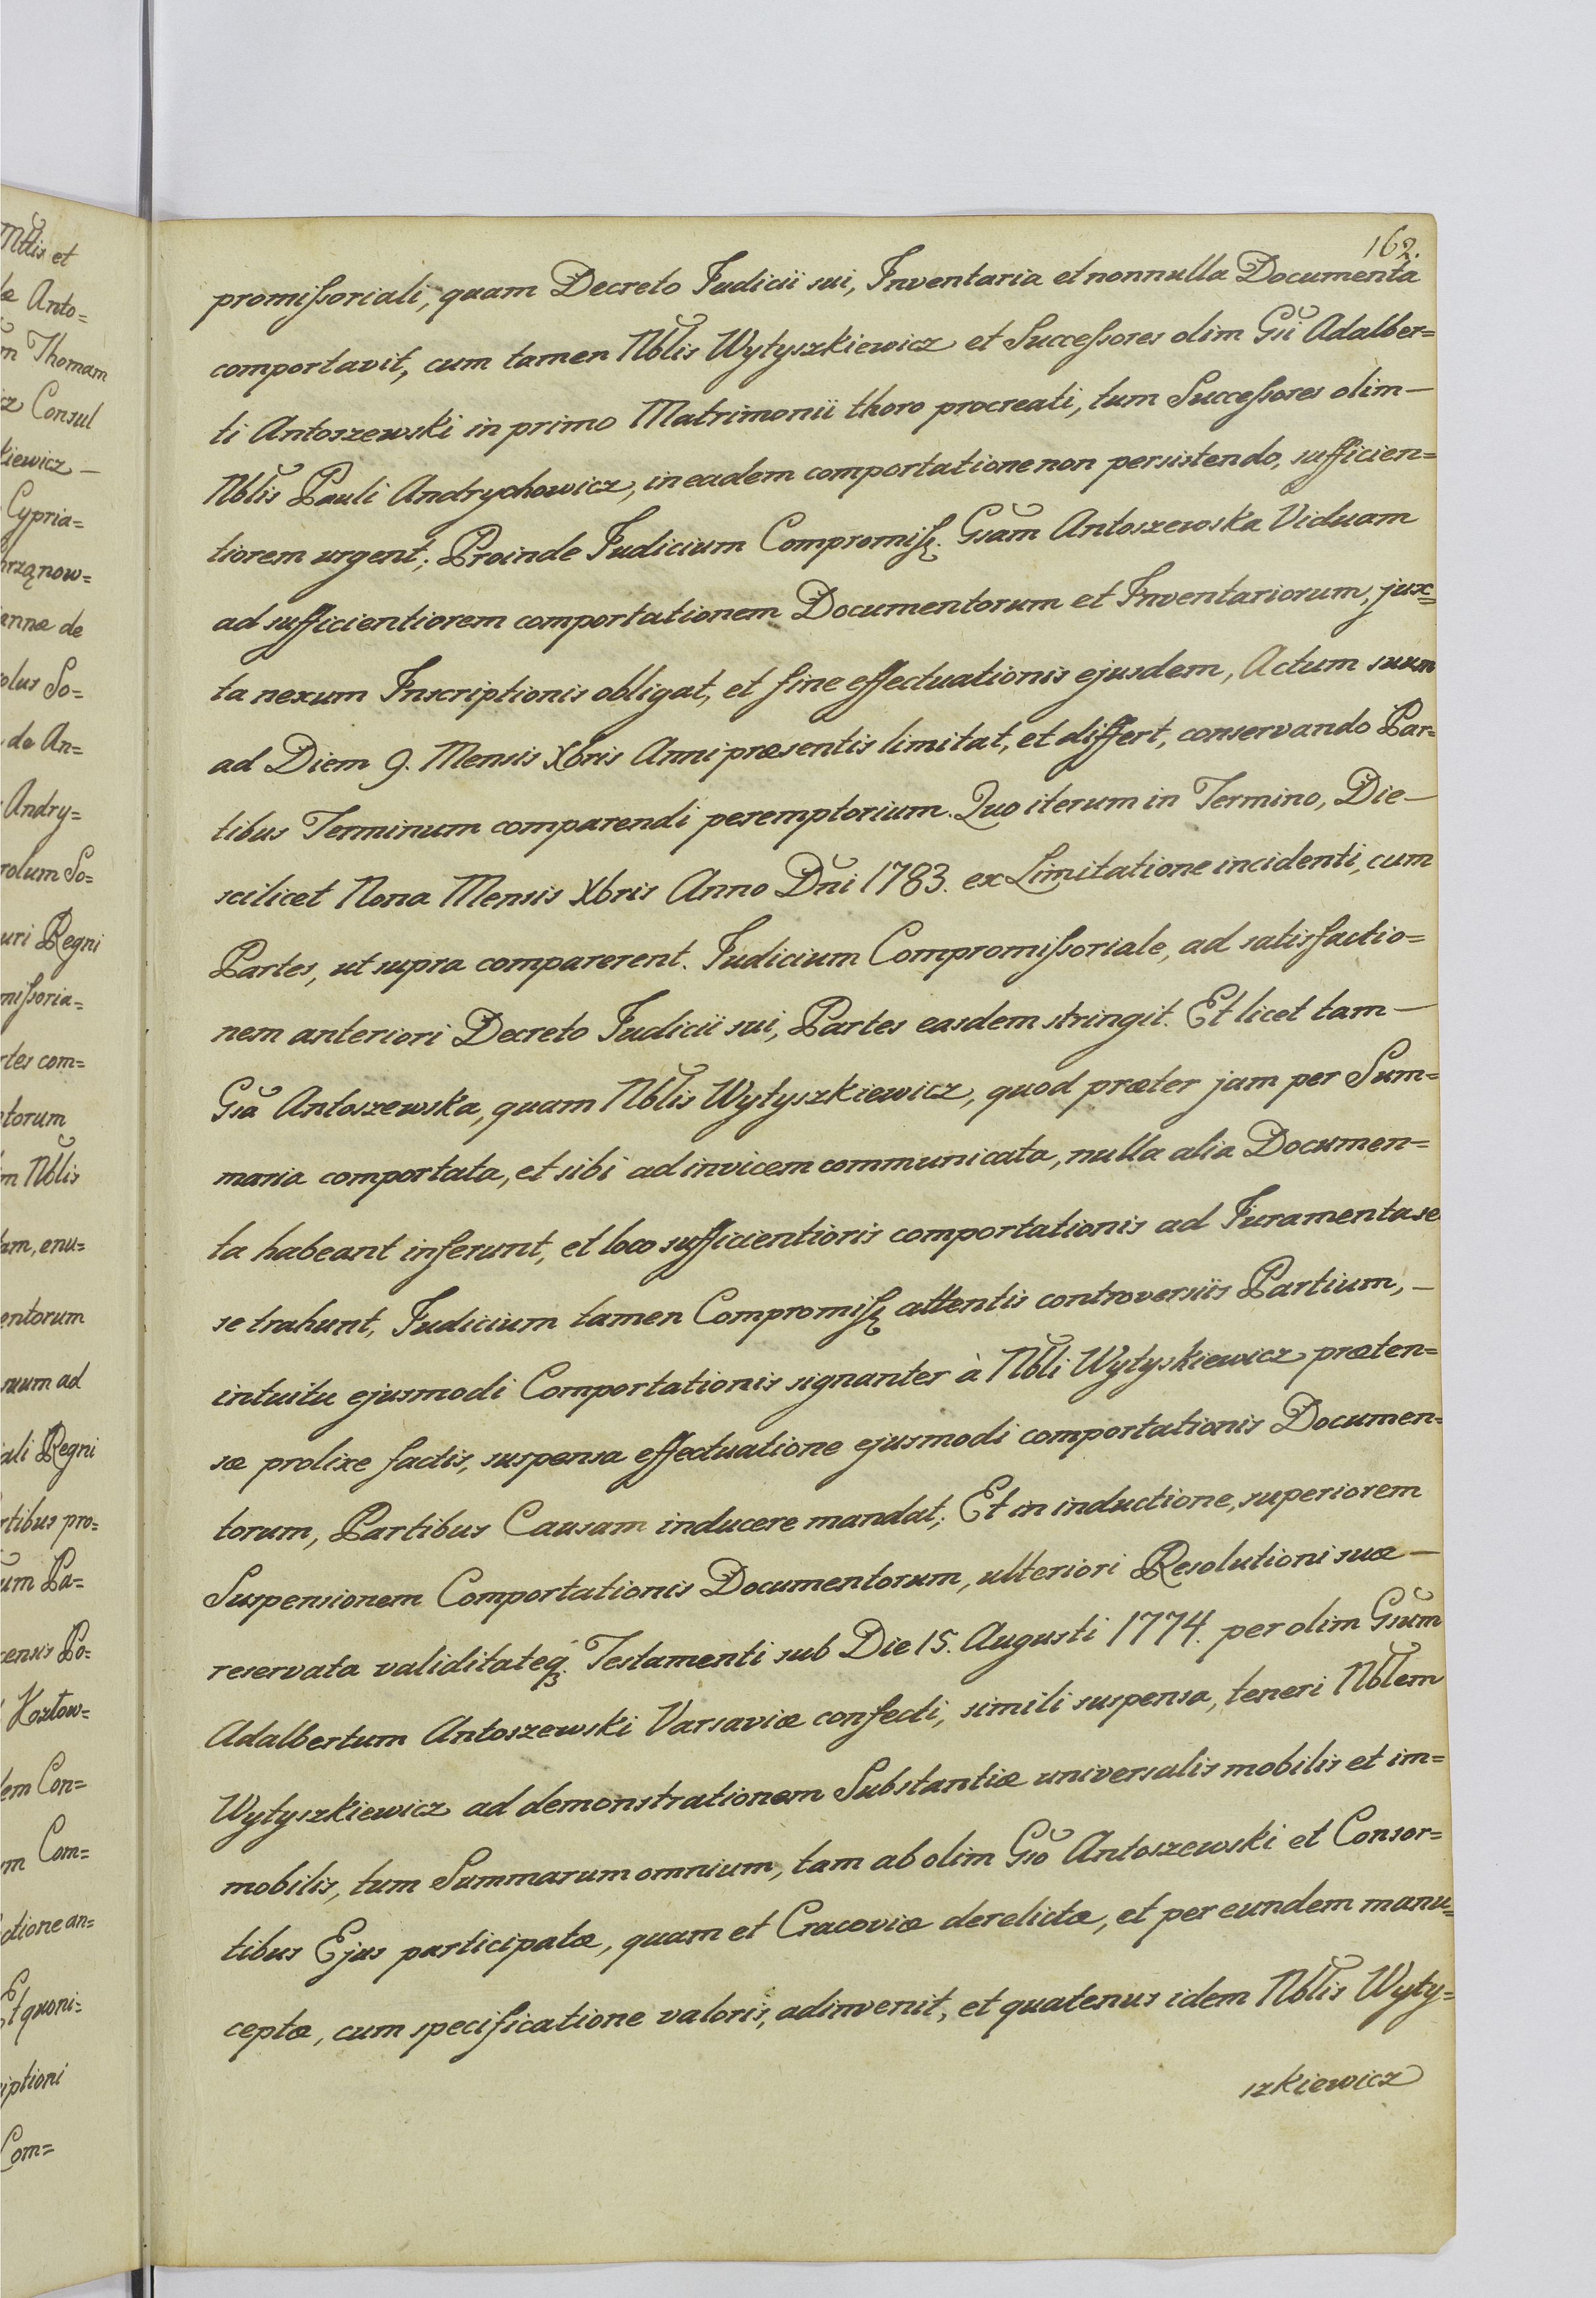 Mttis et
læ Anto=
m Thomam
cz Consul
kiewicz —
Cypria=
hrząnow=
anna de
olus So=
de An=
Andry=
rolum So=
uri Regni
mißoria=
rtes com=
torum
m Nblis
am, enu=
entorum
suum ad
ali Regni
rtibus pro=
um Pa=
censis Po=
Kozłow=
dem Con=
m Com=
ctione an=
Et quoni=
iptioni
Com=
162.
promißoriali, quam Decreto Judicii sui, Inventaria et nonnulla Documenta
comportavit, cum tamen Nblis Wytyszkiewicz et Succeßores olim Gsi Adalber=
ti Antoszewski in primo Matrimonii thoro procreati, tum Succeßores olim —
Nblis Pauli Andrychowicz, in eadem comportatione non persistendo, sufficien=
tiorem urgent; Proinde Judicium Compromiß. Gsam Antoszewska Viduam
ad sufficientiorem comportationem Documentorum et Inventariorum, jux=
ta nexum Inscriptionis obligat, et fine effectuationis ejusdem, Actum suum
ad Diem 9. Mensis Xbris Anni præsentis limitat, et differt, conservando Par=
tibus Terminum comparendi peremptorium. Quo iterum in Termino, Die —
scilicet Nona Mensis Xbris Anno Dni 1783. ex Limitatione incidenti, cum
Partes, ut supra comparerent. Judicium Compromißoriale, ad satisfactio=
nem anteriori Decreto Judicii sui, Partes easdem stringit. Et licet tam —
Gsa Antoszewska, quam Nblis Wytyszkiewicz, quod præter jam per Sum=
maria comportata, et sibi ad invicem communicata, nulla alia Documen=
ta habeant inferunt, et loco sufficientioris comportationis ad Juramenta se
se trahunt, Judicium tamen Compromiß attentis controversiis Partium, —
intuitu ejusmodi Comportationis signanter à Nbli Wytyskiewicz præten=
sæ prolixe factis, suspensa effectuatione ejusmodi comportationis Documen=
torum, Partibus Causam inducere mandat; Et in inductione, superiorem
Suspensionem Comportationis Documentorum, ulteriori Resolutioni suæ —
reservata validitateq; Testamenti sub Die 15. Augusti 1774. per olim Gsum
Adalbertum Antoszewski Varsaviæ confecti, simili suspensa, teneri Nblem
Wytyszkiewicz ad demonstrationem Substantiæ universalis mobilis et im=
mobilis, tum Summarum omnium, tam ab olim Gso Antoszewski et Consor=
tibus Ejus participatæ, quam et Cracoviæ derelictæ, et per eundem manu=
ceptæ, cum specificatione valoris, adinvenit, et quatenus idem Nblis Wyty=
szkiewicz